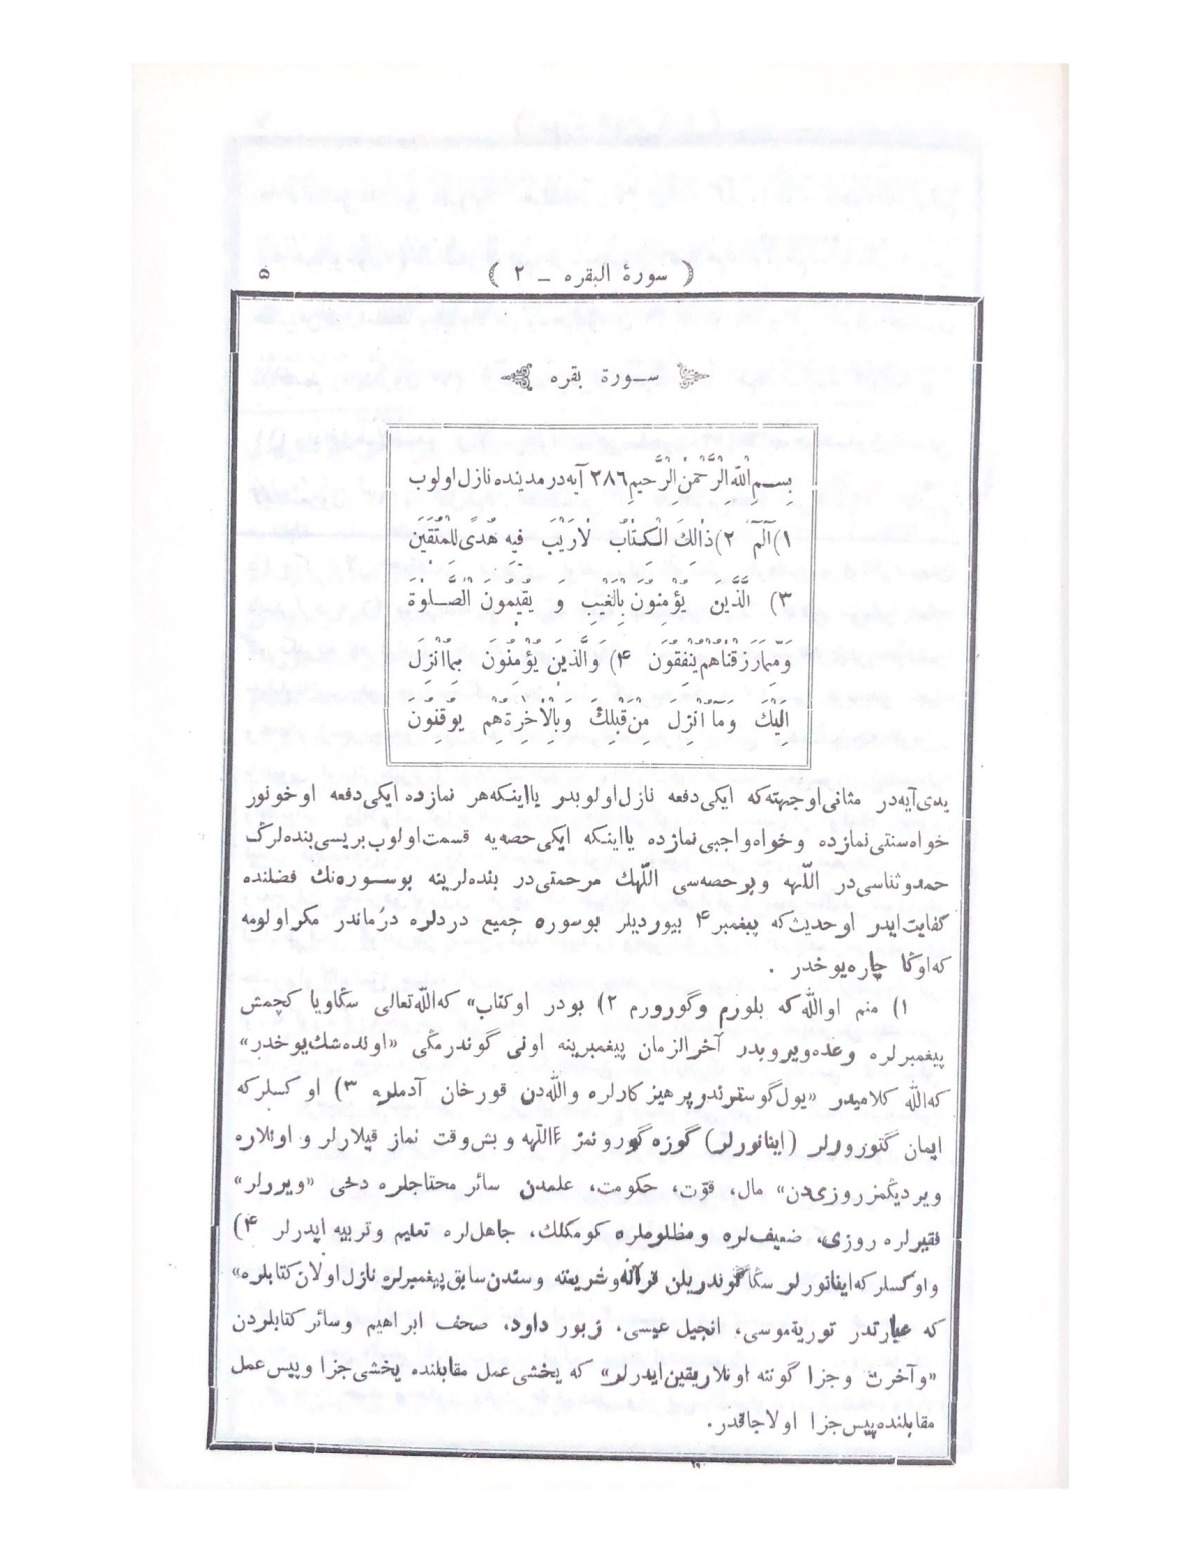 ﴿ سورهٔ البقره ـ ۲ ﴾ ۵
سـورة بقره
بِسـمِ اللهِ الرَّحْمٰنِ الرَّحیمِ ۲۸۶ آیه در مدنده نازل اولوب
۱) آلٓمٓ ۲) ذٰالِكَ الْكِتٰابُ لاٰرَیْبَ فیهِ هُدًی لِلْمُتَّقینَ
۳) الَّذَینَ یُؤْمِنُونَ بِالْغَیْبِ وَ یُقیٖمُونَ الصَّـلوٰةَ
وَمِّمٰا رَزَقْنٰاهُمْ یُنْفِقُونَ ۴) وَالَّذینَ یُؤْمِنُونَ بِمٰا اُنْزِلَ
اِلَیْكَ وَمٰٓا اُنْزِلَ مِنْ قَبْلِكَ وَبِالْاٰخِرَةِ هُم یُوقِنُونَ
یدی آیه در مثانی او جهته که ایکی دفعه نازل اولوبدر یا اینکه هر نمازده ایکی دفعه او خونور
خواه سنتی نمازده و خواه واجبی نمازده یا اینکه ایکی حصه یه قسمت اولوب بریسی بنده لرڭ
حمد و ثناسی در اللّهه و بر حصه سی اللهڭ مرحمتی در بنده لرینه بو سـوره نڭ فضلنده
کفایت ایدر او حدیث که پیغمبر ۴ بیوردیلر بو سوره جمیع دردلره درماندر مگر اولومه
که اوڭا چاره یوخدر .
۱) منم اوالله که بلورم و گورورم ۲) بودر اوکتاب» که الله تعالی سڭا و یا کچمش
پیغمبرلره وعده ویروبدر آخرالزمان پیغمبرینه اونی گوندرمگی «اونده شك یوخدر»
که الله کلامیدر «یول گوسترندر پرهیزکارلره والله دن قورخان آدملره ۳) او کسلر که
ایمان گتورورلر (اینانورلر) گوزه گورونمز اللهه و بش وقت نماز قیلارلر و اونلاره
ویردیگمز روزی دن» مال، قوّت، حکومت، علمدن سائر محتاجلره دخی «ویررلر»
فقیرلره روزی، ضعیف لره و مظلوملره کومکلك، جاهل لره تعلیم و تربیه ایدرلر ۴)
و او کسلر که اینانورلر سڭا گوندریلن قرآنه و شریعته و سندن سابق پیغمبرلره نازل اولان کتابلره»
که عبارتدر توریة موسی، انجیل عیسی، زبور داود، صحف ابراهیم و سائر کتابلردن
«و آخرت و جزا گوننه اونلار یقین ایدرلر» که یخشی عمل مقابلنده یخشی جزا و پیس عمل
مقابلنده پیس جزا اولاجاقدر.